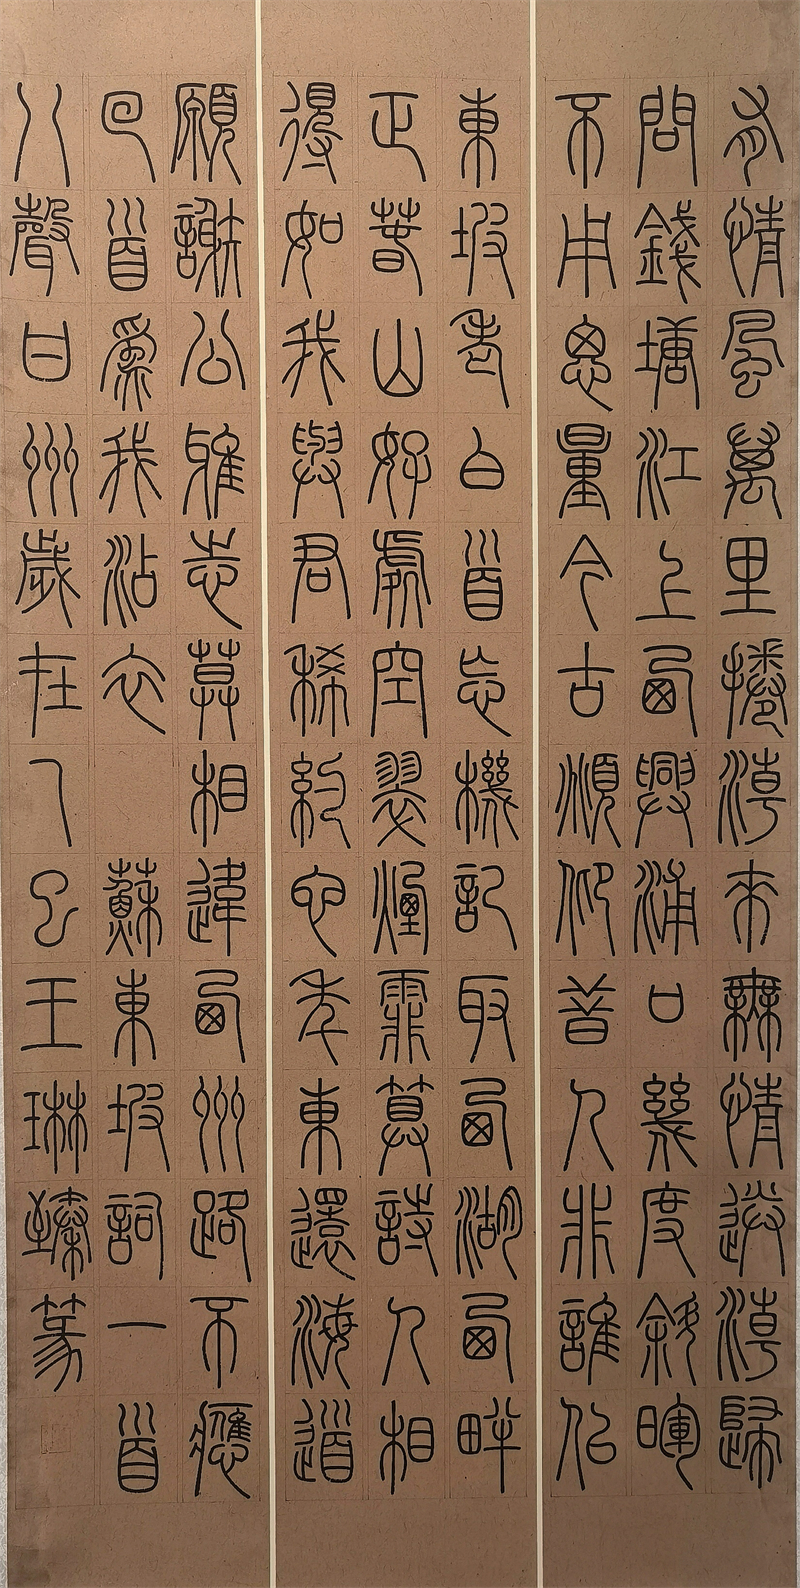 有情風萬里捲潮來無情送潮歸
問錢塘江上西興浦口幾度斜暉
不用思量今古頫仰昔人非誰似
東坡老白首忘機記取西湖西畔
正春山好處空翠煙霏算詩人相
得如我與君稀約它年東還海道
願謝公雅志莫相違西州路不應
回首為我沾衣 蘇東坡詞一首
八聲甘州歲在乙巳王琳臻篆